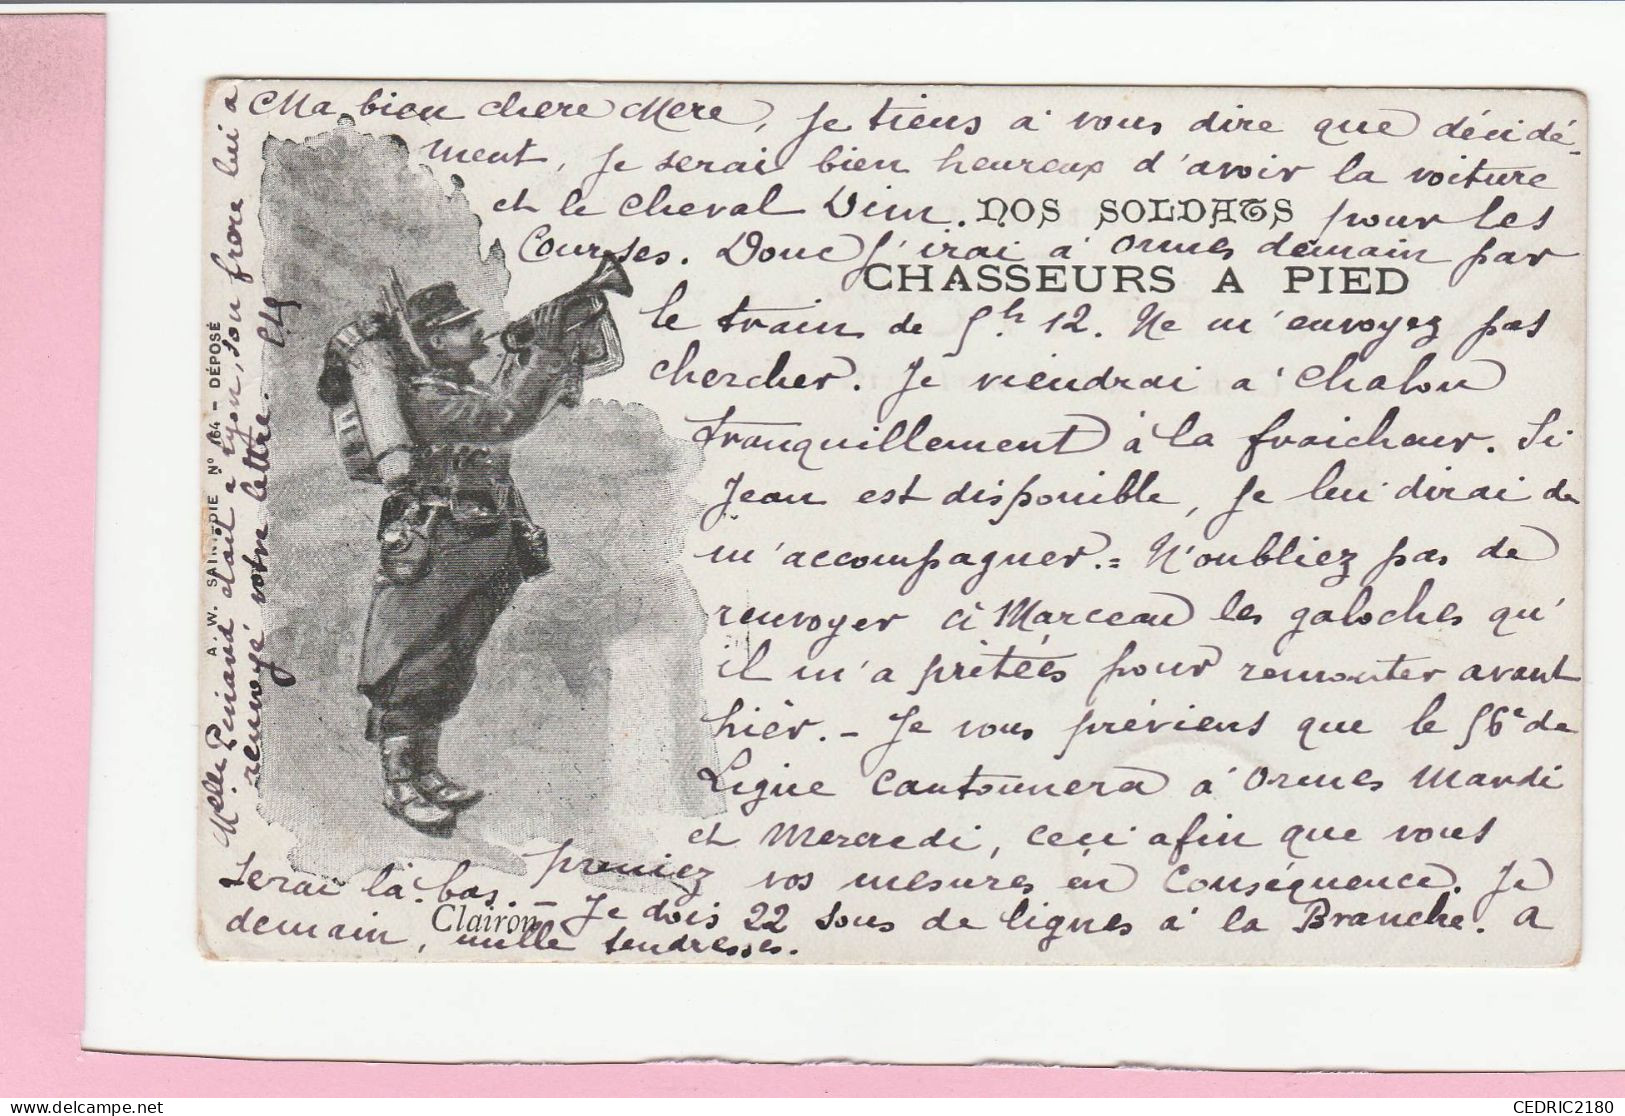 Ma bien chere Mere, Je tiens à vous dire que décidé-
ment, Je serai bien heureux d'avoir la voiture
et le cheval Dim. pour les
NOS SOLDATS
Courses. Donc J'irai à Ormes demain par
CHASSEURS A PIED
le train de 5h 12. Ne m'envoyez pas
chercher. Je viendrai à Chalon
tranquillement à la fraicheur. Si
Jean est disponible, Je lui dirai de
m'accompagner.= N'oubliez pas de
renvoyer à Marceau les galoches qu'
il m'a prêtées pour remonter avant
hièr. - Je vous préviens que le 56e de
Ligne Cantonnera à Ormes Mardi
et Mercredi, ceci afin que vous
preniez vos mesures en Conséquence. Je
serai là-bas. - Je dois 22 sous de lignes à la Branche. A
demain, mille tendresses.
Clairon
A. W. SAINT-DIE N° 164 - DÉPOSÉ
Melle Peniaud étant à Lyon, son frere lui a
renvoyé votre lettre.